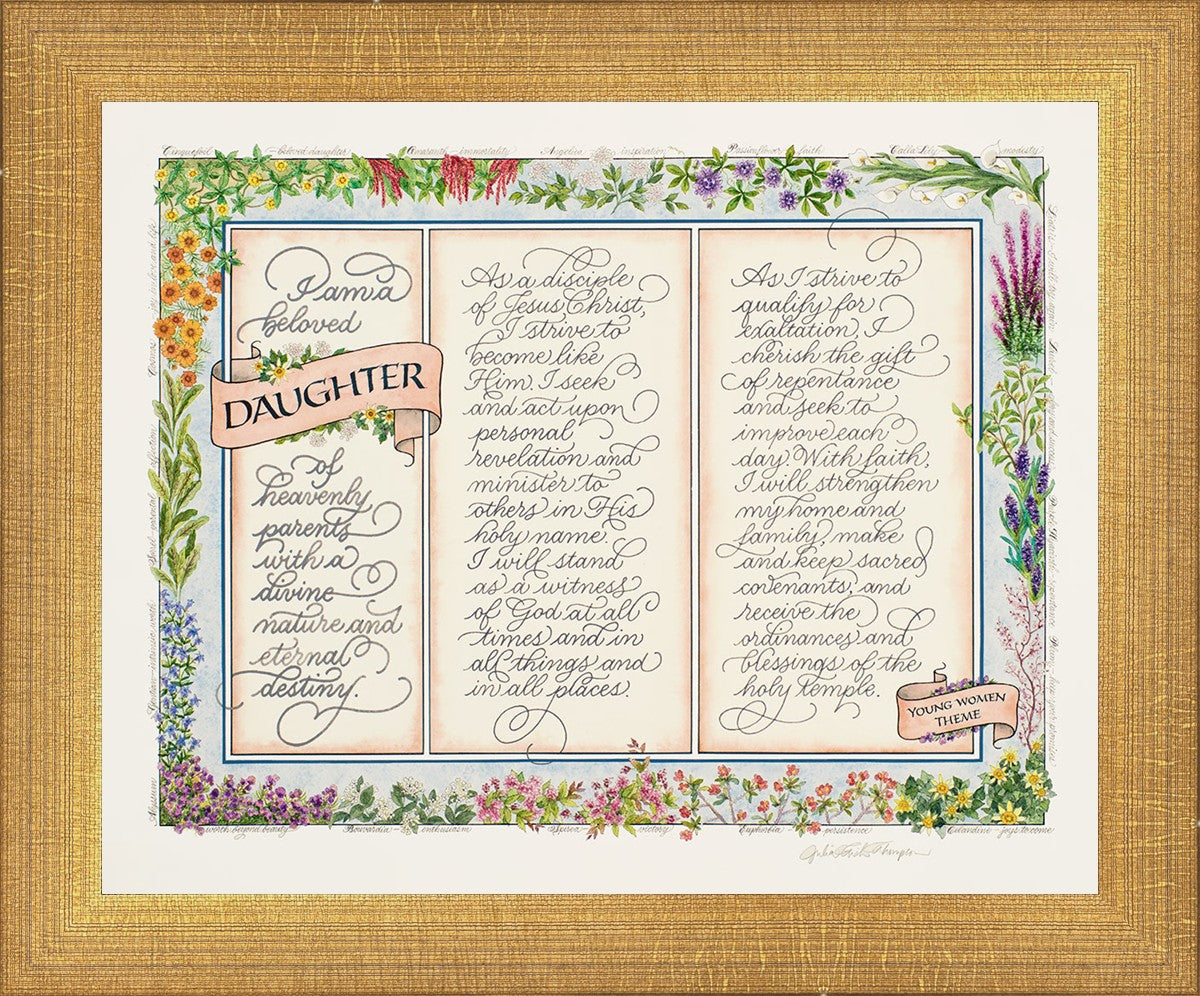 Cinquefoil – beloved daughter
Amaranth – immortality
Angelica – inspiration
Passionflower – faith
Calla Lily – modesty
I am a
beloved
DAUGHTER
of
heavenly
parents
with a
divine
nature and
eternal
destiny.
As a disciple
of Jesus Christ,
I strive to
become like
Him. I seek
and act upon
personal
revelation and
minister to
others in His
holy name.
I will stand
as a witness
of God at all
times and in
all things and
in all places.
As I strive to
qualify for
exaltation, I
cherish the gift
of repentance
and seek to
improve each
day. With faith,
I will strengthen
my home and
family, make
and keep sacred
covenants, and
receive the
ordinances and
blessings of the
holy temple.
YOUNG WOMEN
THEME
Alyssum
worth beyond beauty
Bouvardia – enthusiasm
Spirea – victory
Euphorbia – persistence
Celandine – joys to come